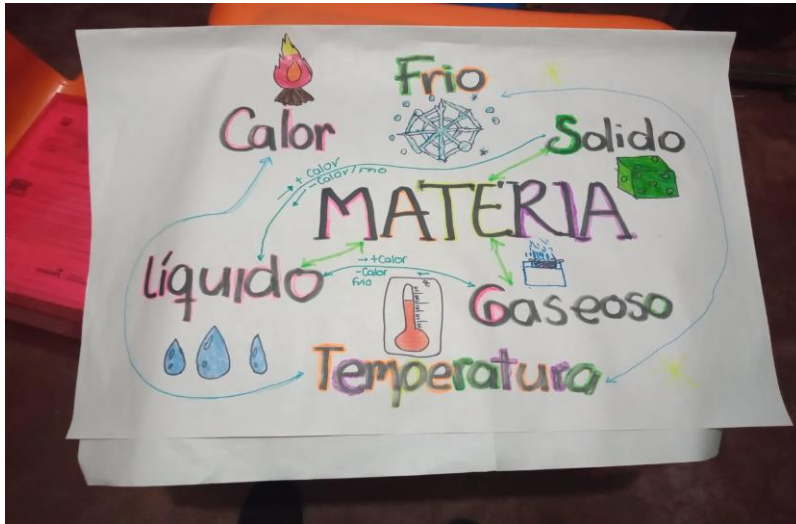 Frio
Calor
Solido
→ + Calor
← - Calor/Frio
MATERIA
líquido
→ + Calor
- Calor ←
Frio
Gaseoso
Temperatura